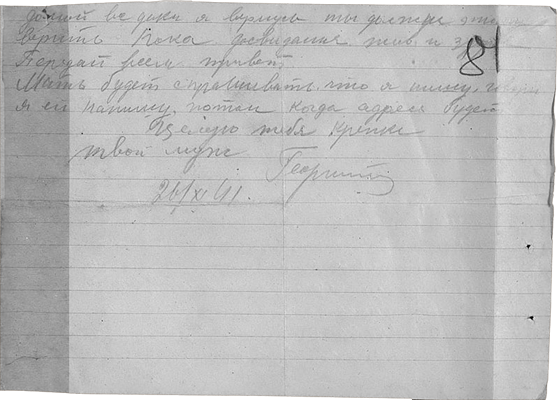 домой ведь я вернусь ты должна этому
верить Пока досвидания жив и зд
Передай всем привет.
Мать будет спрашивать что я пишу,
я ей напишу, потом когда адрес будет
Целую тебя крепко
твой муж
Георгий
26/XI 41.
81